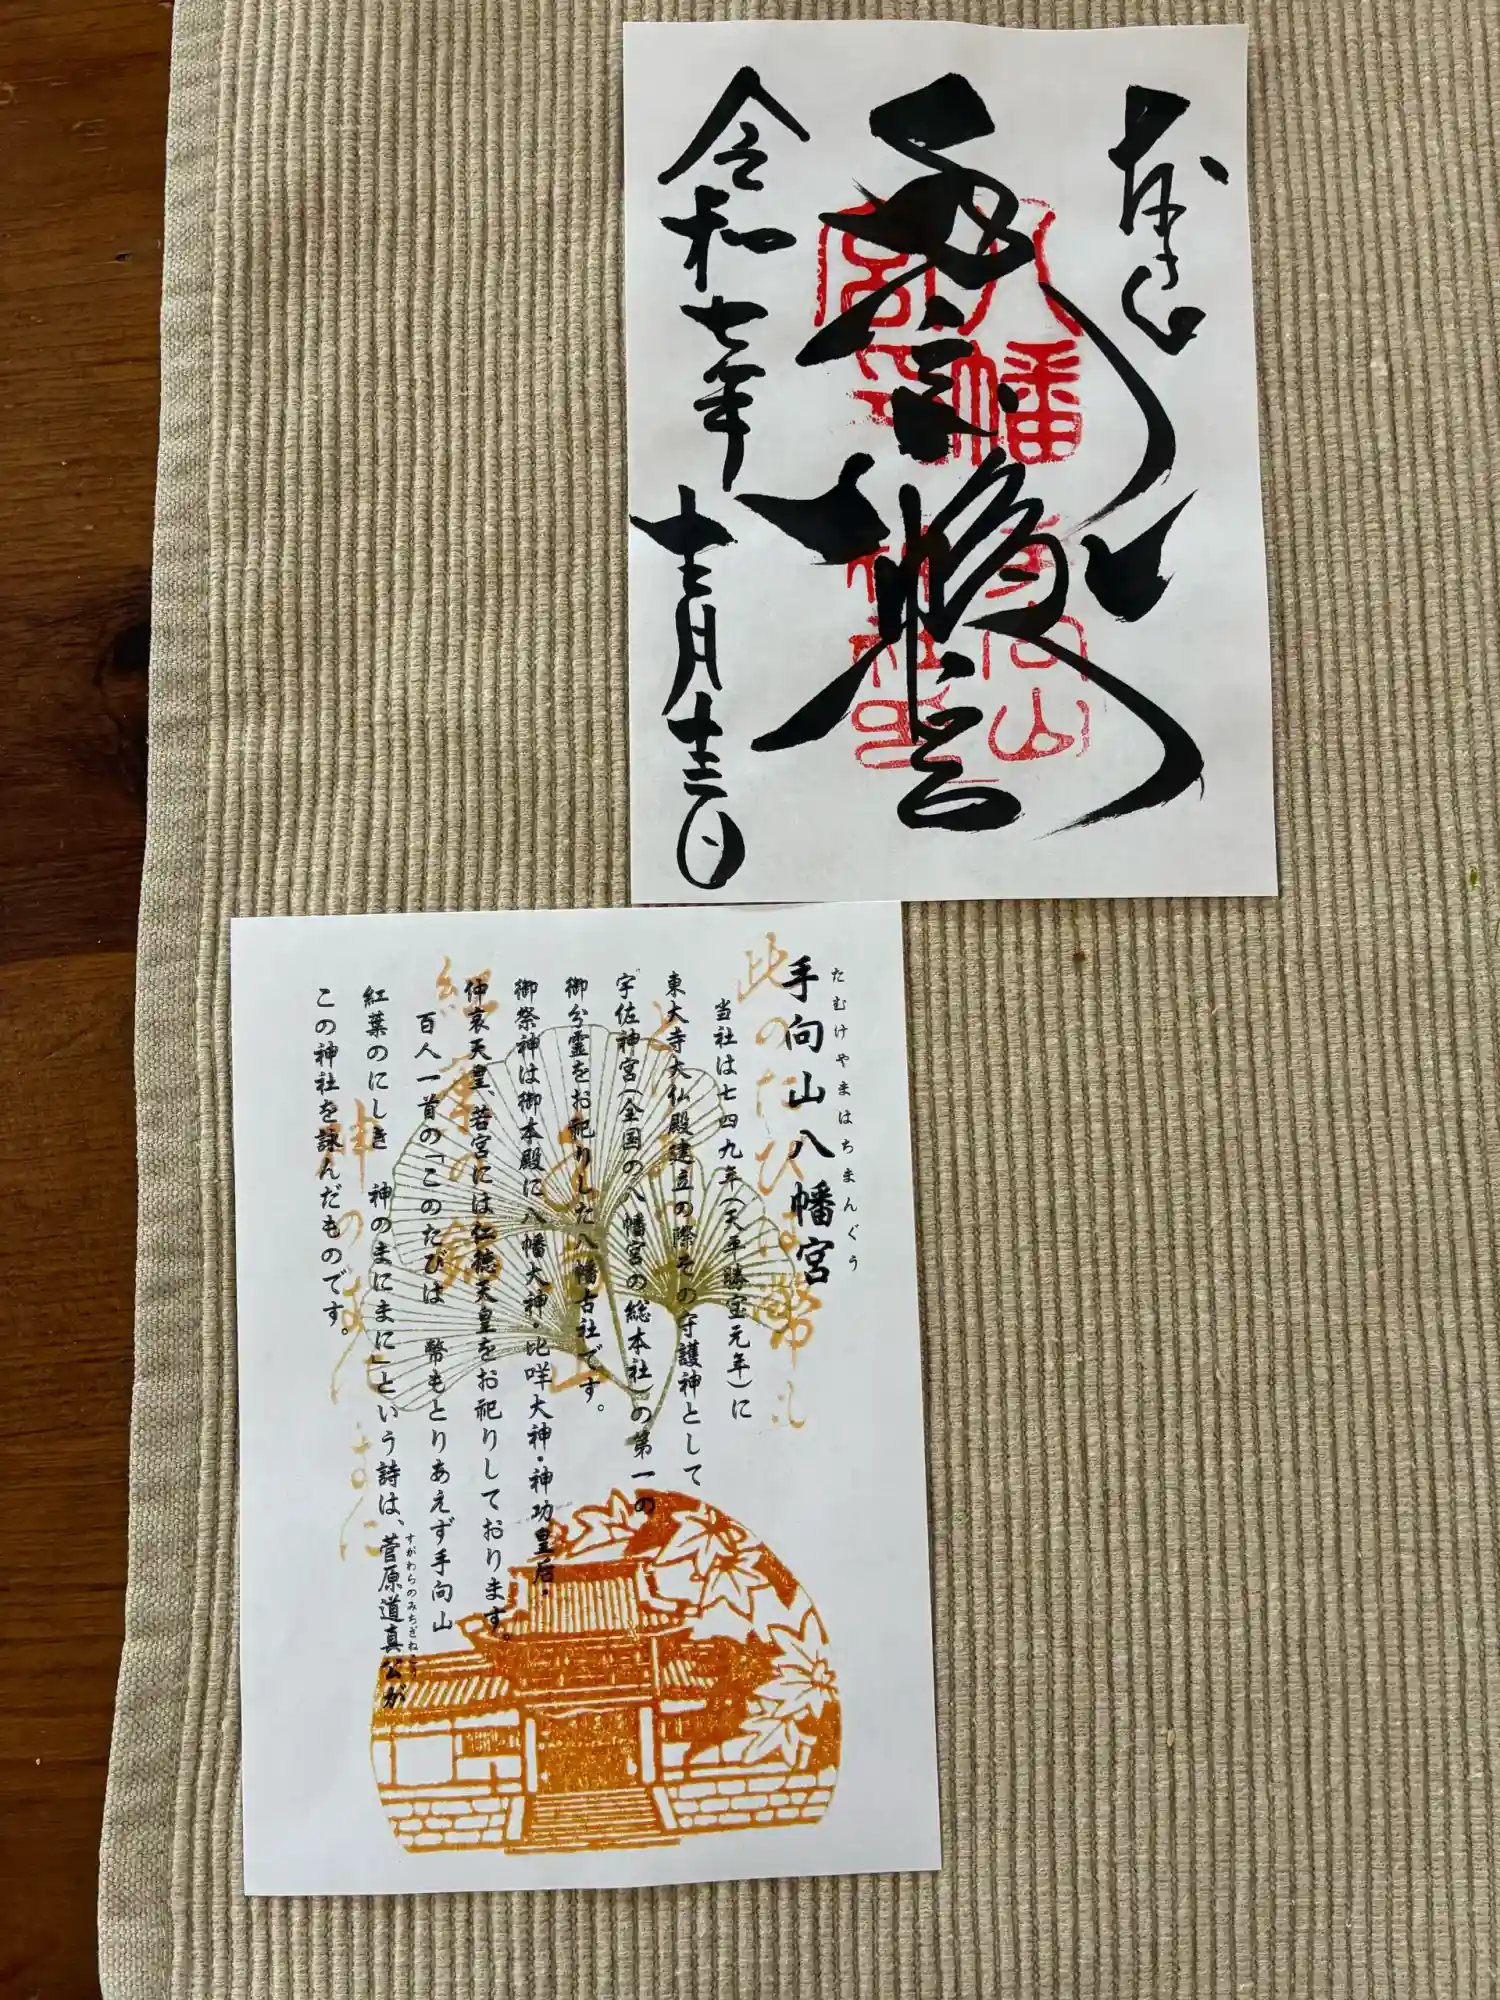 令和七年十二月
八幡
宮印
手向山
たむけやまはちまんぐう
手向山八幡宮
当社は七四九年(天平勝宝元年)に
東大寺大仏殿建立の際その守護神として
宇佐神宮(全国の八幡宮の総本社)の第一の
御分霊をお祀りした八幡古社です。
御祭神は御本殿に八幡大神・比咩大神・神功皇后・
仲哀天皇、若宮には仁徳天皇をお祀りしております。
百人一首の「このたびは 幣もとりあえず手向山
紅葉のにしき 神のまにまに」という詩は、菅原道真公が
すがわらのみちざねこう
この神社を詠んだものです。
此のたびは幣も
紅葉の錦
神のまにまに